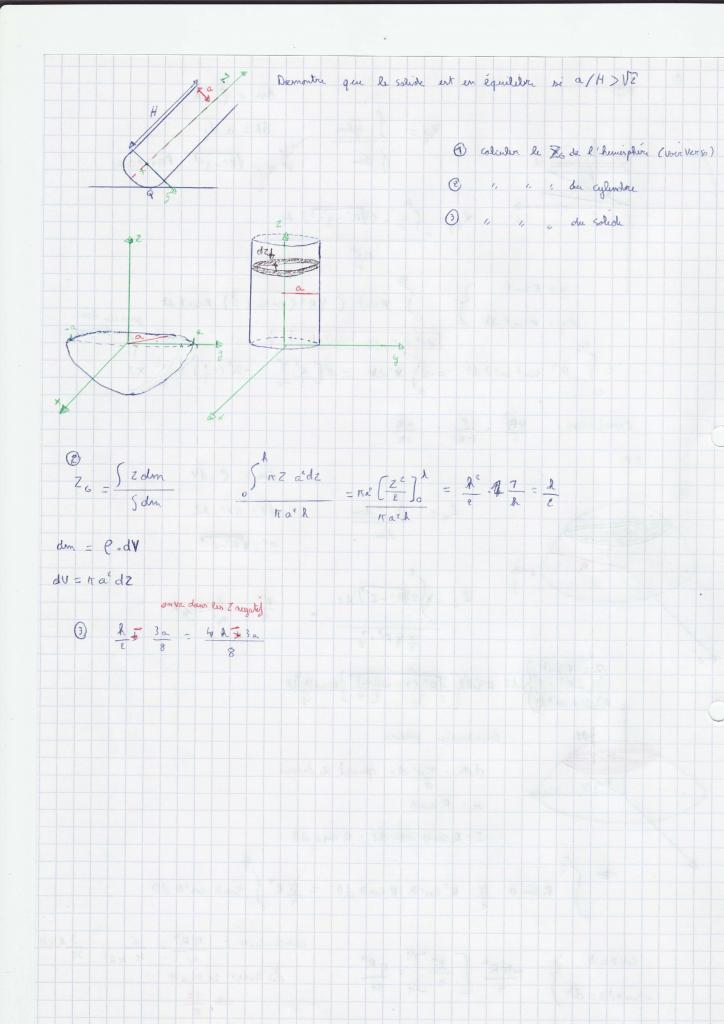 Demontre que le solide est en équilibre si a/H > √2
H
a
Z
Q
① calculer le Z_G de l'hemisphère (voir verso)
② " " " du cylindre
③ " " " du solide
Z
-a
a
a
y
x
Z
dZ
a
y
x
②
Z_G = ∫ Z dm / ∫ dm
₀∫^h πZ a² dZ / π a² h = π a² [Z²/2]₀^h / π a² h = h²/2 · 1/h = h/2
dm = ρ.dV
dV = π a² dZ
on va dans les Z negatif
③ h/2 - 3a/8 = 4h - 3a / 8